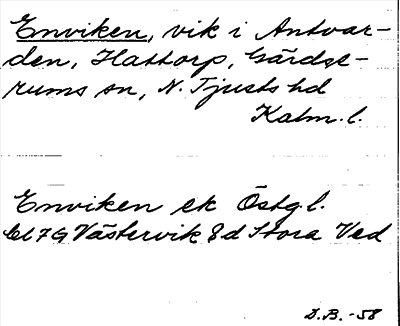 Enviken, vik i Antvar-
den, Hattorp, Gärdse-
rums sn, N. Tjusts hd
Kalm. l.
Enviken ek Östgl.
bl 7G Västervik 8d Stora Ved
D.B. -58